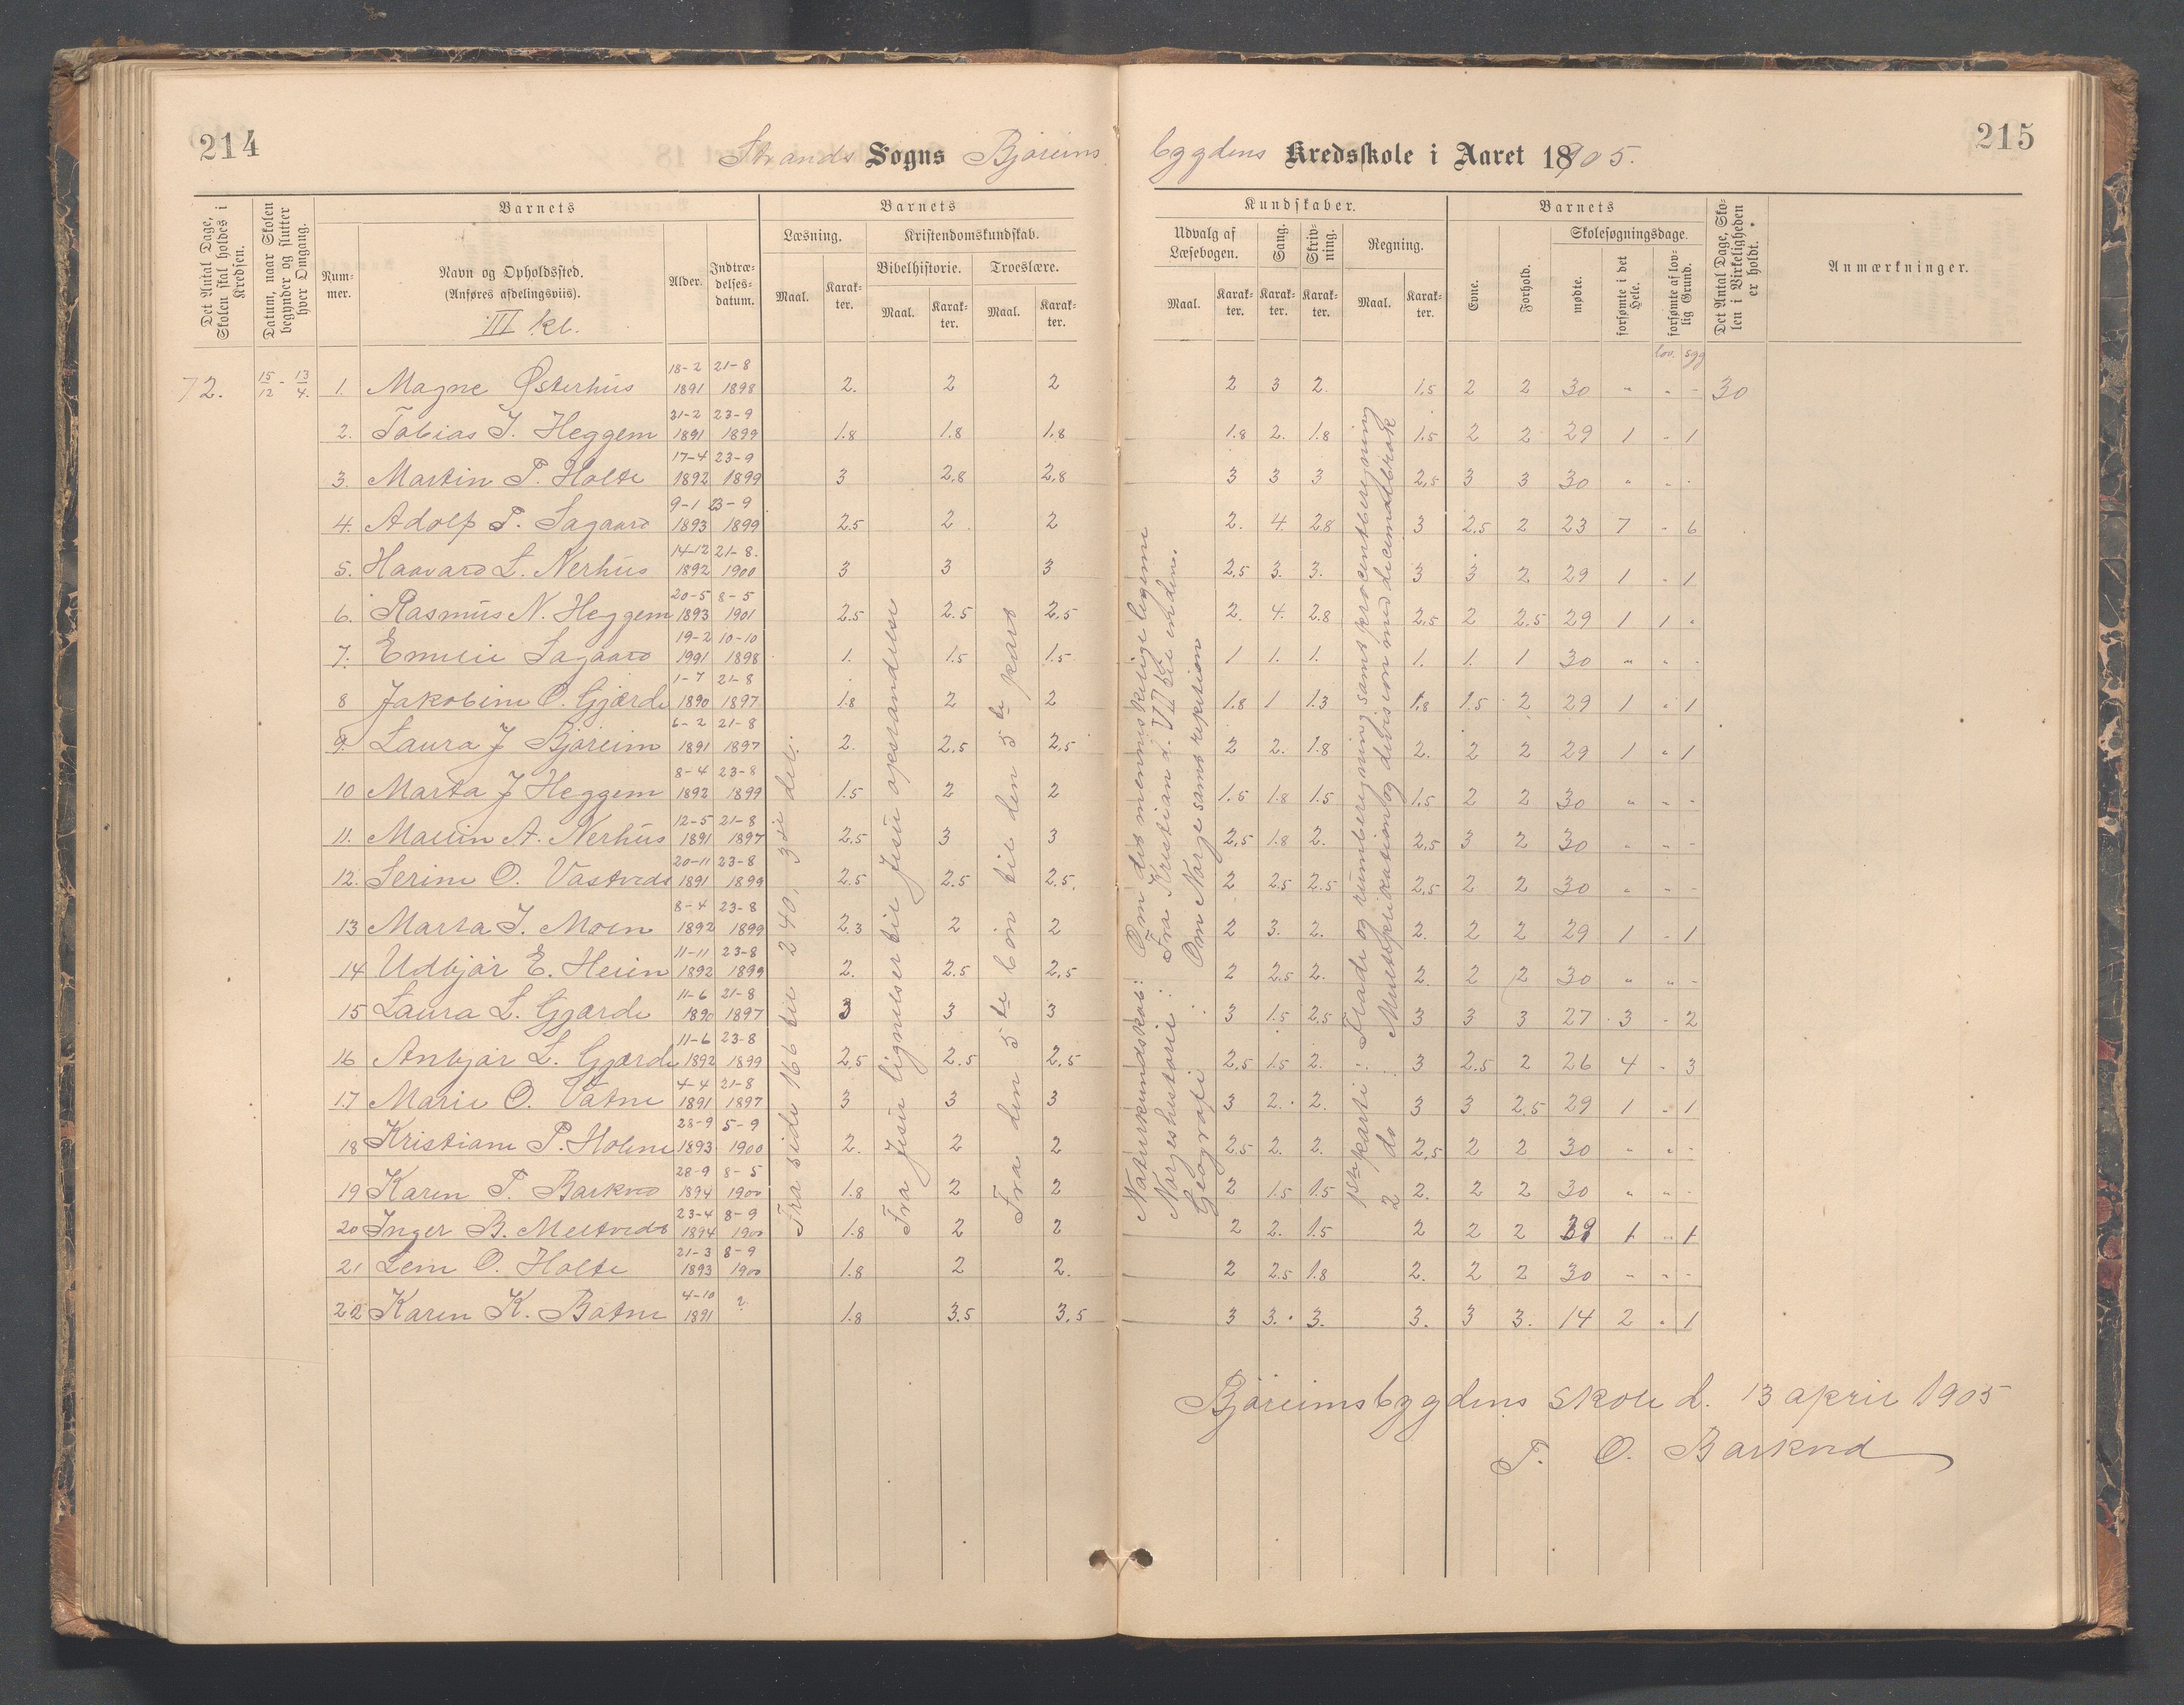 214
Strands Sogns Bjøreims
bygdens Kredsskole i Aaret 18905.
215
Det Antal Dage, Skolen skal holdes i Kredsen.
Datum, naar Skolen begynder og slutter hver Omgang.
Barnets
Num-mer.
Navn og Opholdssted.
(Anføres afdelingsviis).
III kl.
Alder.
Indtræ-delses-datum.
Barnets
Læsning.
Maal.
Karak-ter.
Kristendomskundskab.
Bibelhistorie.
Maal.
Karak-ter.
Troeslære.
Maal.
Karak-ter.
Kundskaber.
Udvalg af Læsebogen.
Maal.
Karak-ter.
Sang.
Karak-ter.
Skriv-ning.
Karak-ter.
Regning.
Maal.
Karak-ter.
Barnets
Evne.
Forhold.
Skolesøgningsdage.
mødte.
forsømte i det Hele.
forsømte af lov-lig Grund.
Det Antal Dage, Sko-len i Virkeligheden er holdt.
Anmærkninger.
lov. syg
72. 15/12 - 13/4. 1. Magne Østerhus 18-2 1891 21-8 1898 2. 2 2 2 3 2. 1,5 2 2 30 " " - 30
2. Tobias T. Heggem 21-2 1891 23-9 1899 1.8 1.8 1,8 1.8 2. 1.8 1.5 2 2 29 1 - 1
3. Martin P. Holte 17-4 1892 23-9 1899 3 2,8 2,8 3 3 3 2,5 3 3 30 " " -
4. Adolf P. Sagaard 9-1 1893 23-9 1899 2.5 2 2 2. 4. 2.8 3 2.5 2 23 7 - 6
5. Haavard L. Nerhus 14-12 1892 21-8. 1900 3 3 3 2,5 3. 3. 3 3 2 29 1 - 1
6. Rasmus N. Heggem 20-5 1893 8-5 1901 2.5 2.5 2,5 2. 4. 2.8 2,5 2 2.5 29 1 1 "
7. Emilie Sagaard 19-2 1991 10-10 1898 1. 1.5 1.5 1 1. 1. 1. 1. 1 30 " " -
8 Jakobine O. Gjærde 1-7 1890 21-8 1897 1.8 2 2 1.8 1 1.3 1,8 1.5 2 29 1 " 1
9. Laura J Bjøreim 6-2 1891 21-8 1897 2. 2,5 2,5 2 2. 1.8 2. 2 2 29 1 " 1
10 Marta J Heggem 8-4 1892 23-8 1899 1.5 2 2 1,5 1.8 1.5 1,5 2 2 30 " - -
11. Mallin A. Nerhus 12-5 1891 21-8 1897 2,5 3 3 2,5 1.8 2. 2,5 3 2 30 " - -
12. Serine O. Vastveds 20-11 1891 23-8 1899 2.5 2.5 2,5. 2 2.5 2.5 2,5 2 2 30 " - -
13 Marta T. Moen 8-4 1892 23-8 1899 2.3 2 2 2 3. 2. 2. 2 2 29 1 - 1
14 Udbjør E. Heien 11-11 1892 23-8 1899 2. 2.5 2,5 2 2.5 2. 2. 2 2 30 " " -
15 Laura L. Gjærde 11-6 1890 21-8 1897 3 3 3 3 1.5 2.5 3 3 3 27 3 - 2
16 Anbjør L. Gjærde 11-6 1892 23-8 1899 2,5 2.5 2,5 2,5 1.5 2. 3 2.5 2 26 4 - 3
17 Marie O. Vatne 4-4 1891 21-8 1897 3 3 3 3 2. 2. 3 3 2.5 29 1 - 1
18 Kristiane P. Holme 28-9 1893 5-9 1900 2. 2 2 2.5 2. 2. 2,5 2 2 30 " " -
19 Karen T. Barkved 28-9 1894 8-5 1900 1.8 2 2 2 1.5 1.5 2. 2 2 30 " " -
20 Inger B. Meltveds 23-4 1894 8-9 1900 1.8 2 2 2 2. 1.5 2 2 2 29 1 " 1
21 Lene O. Holte 21-3 1893 8-9 1900 1.8 2 2. 2 2.5 1.8 2. 2 2 30 - - -
22 Karen K. Bøtne 4-10 1891 ? 1.8 3.5 3,5 3 3. 3. 3. 3 3. 14 2 " 1
Fra side 166 til 240, 3die del.
Fra Jesu lignelser til Jesu opstandelse
Fra den 5te bøn til den 5te part
Naturkundskab: Om det menneskelige legeme
Norgeshistorie: Fra Kristian d. VII til enden.
Geografi: Om Norge samt repetion
1ste parti: Flade og rumberegning samt procentberegning
2 do Multiplikation og division med decimalbrøk
Bjøreimsbygdens skole d. 13 april 1905
T. O. Barkved